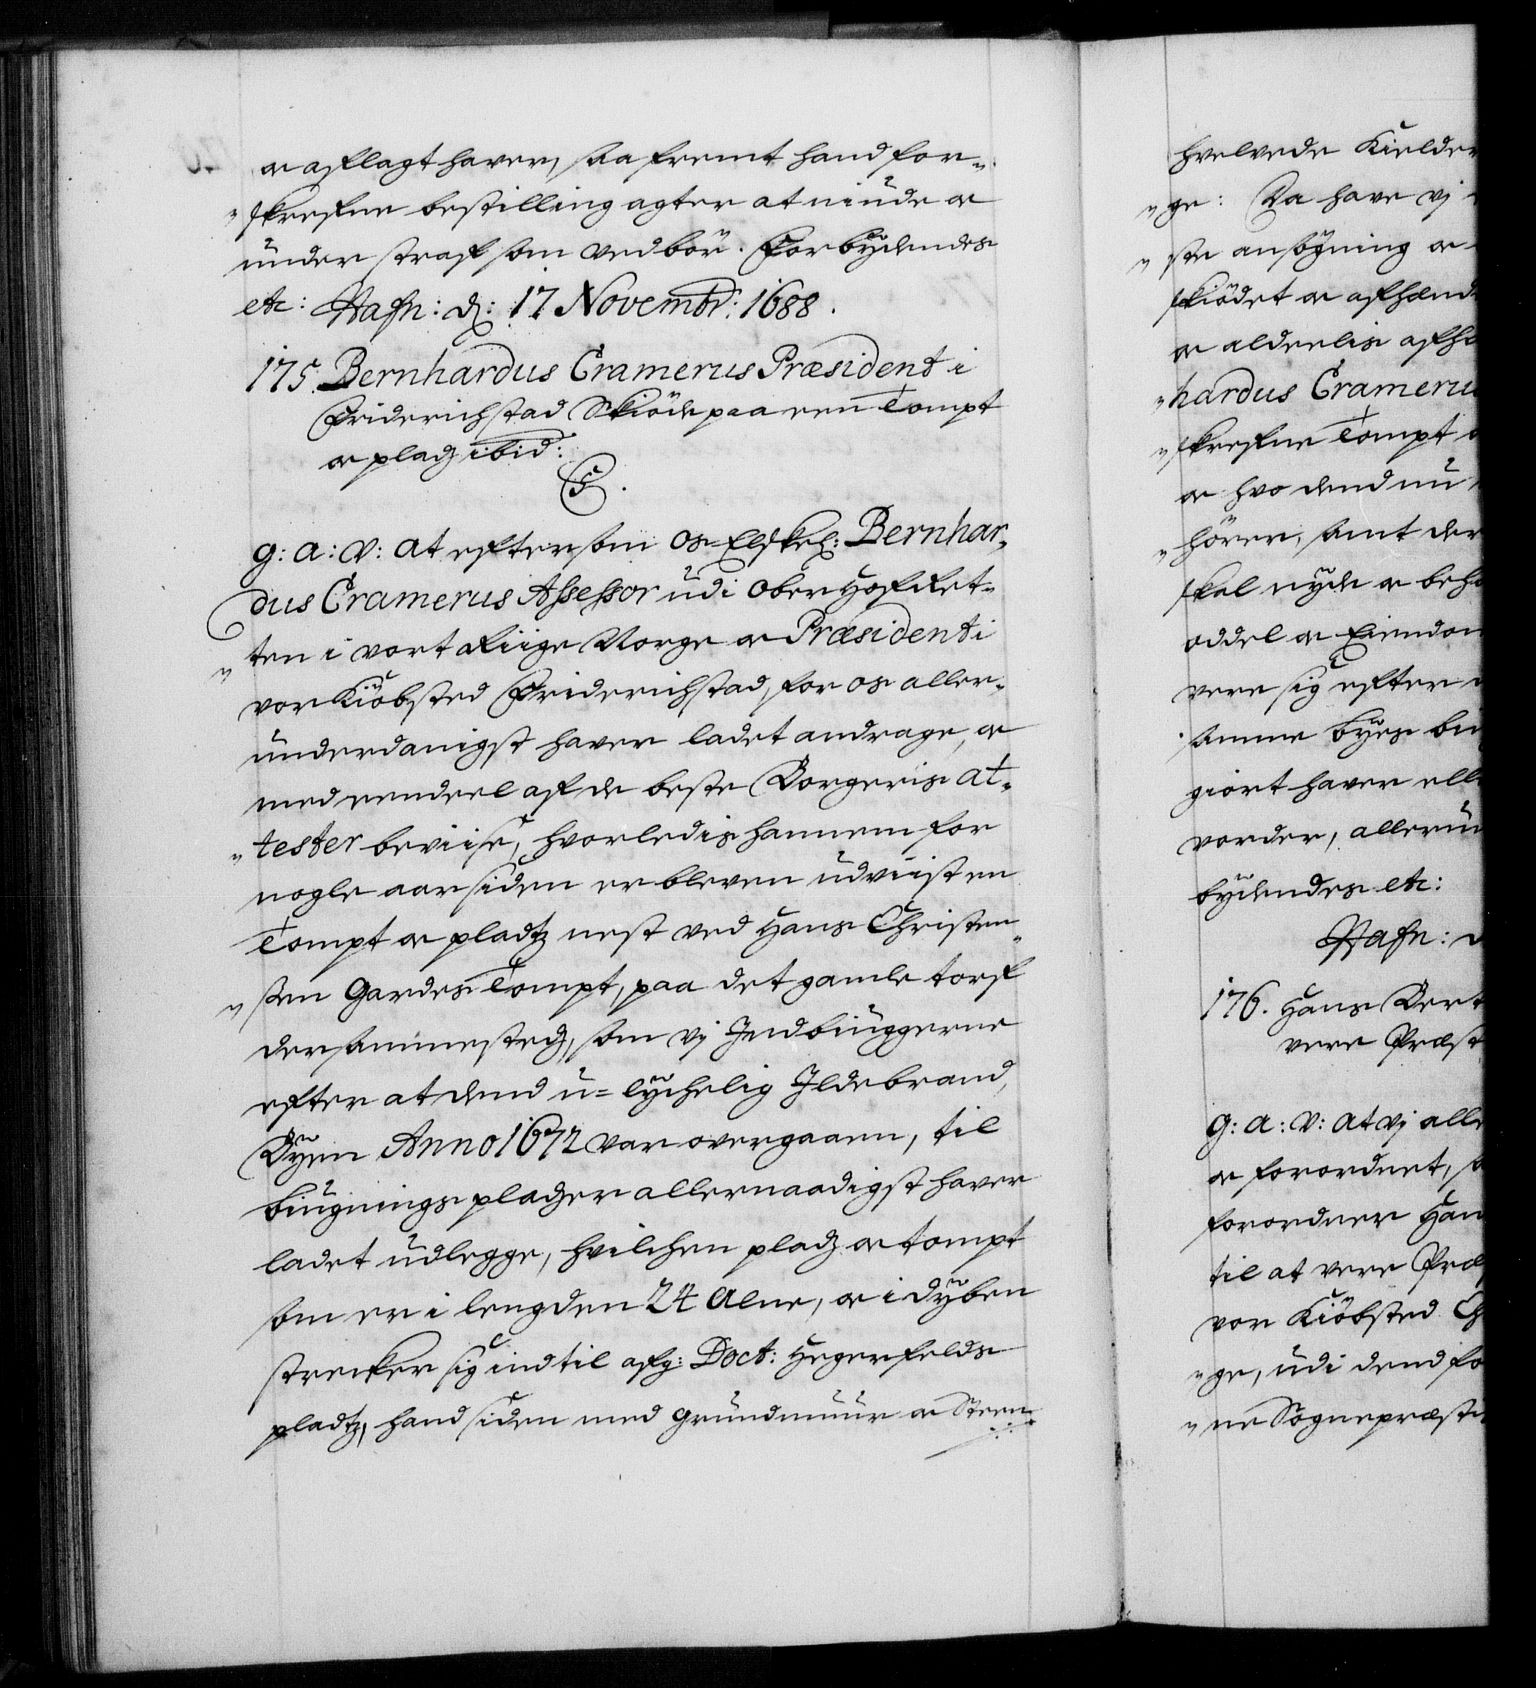 oc aflagt haver, saa fremt hand for-
„skrefne bestilling agter at niude oc
under straf som vedbör. Forbydendes
etc: Hafn: d: 17 Novembr: 1688.
175. Bernhardus Cramerus Præsident i
Friderichstad Skiöde paa een Tompt
oc pladz ibid:
C5.
G: a: V: at eftersom os Elskel: Bernhar„
dus Cramerus Assessor udi OberHofRet-
„ten i vort Riige Norge oc Præsident i
vor Kiöbsted Friderichstad, for os aller-
underdanigst haver ladet andrage, oc
med eendeel af de beste Borgeris at-
„tester beviise, hvorledis hannem for
nogle aar siden er bleven udviist en
Tompt oc pladtz nest ved Hans Christen„
„sen Gardes Tompt, paa det gamle torf
dersammestedz, som vj Indbiuggerne
efter at dend u=lychelig Ildebrand,
Byen Anno 1672 var overgaaen, til
biugnings pladzer allernaadigst haver
ladet udlegge, hvilchen pladz oc tompt
som er i lengden 24 Alne, oc i dyben
strecker sig ind til afg: Doct: Hegerfelds
pladtz, hand siden med Grundmuur oc Steen-
hvelvede Kielder
„ge: Da have vj
„ste ansögning oc
skiödet oc afhænd
oc aldeelis afhæ
„hardus Cramerus
„skrefne Tompt o
oc hvo dend nu
„hörer, samt der
skal nyde oc beho
oddel oc Eiendom
vere sig efter
samme byes bu
giort haver elle
vorder, allerun
bydendes etc:
Hafn: d
176. Hans Bert
vere Præst
G: a: V: at vj alle
oc forordnet, s
forordner Han
til at vere Præ
vor Kiöbsted Ch
„ge, udi dend fo
„ne Sognepræste